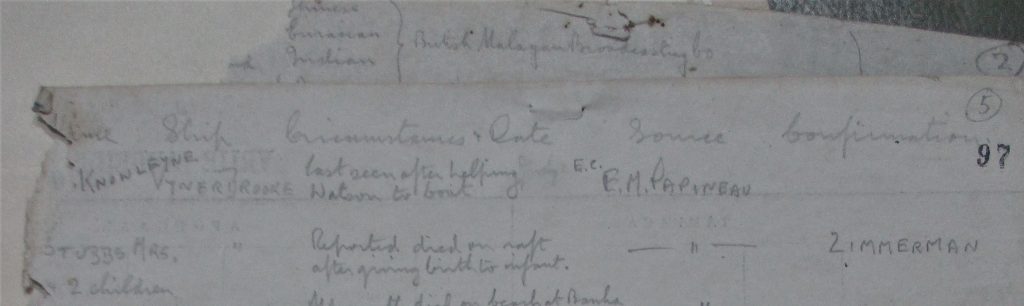 Chinese
Eurasian
Indian } British Malayan Broadcasting Co
2
5
Ship Circumstances & Date Source Confirmation
97
KNOWLEYNE VYNERBROOKE last seen after helping E.C. E.M. PAPINEAU
Watson to boat
STUBBS MRS. " Reported died on raft — " — ZIMMERMAN
after giving birth to infant.
2 children
died on beach at Banka